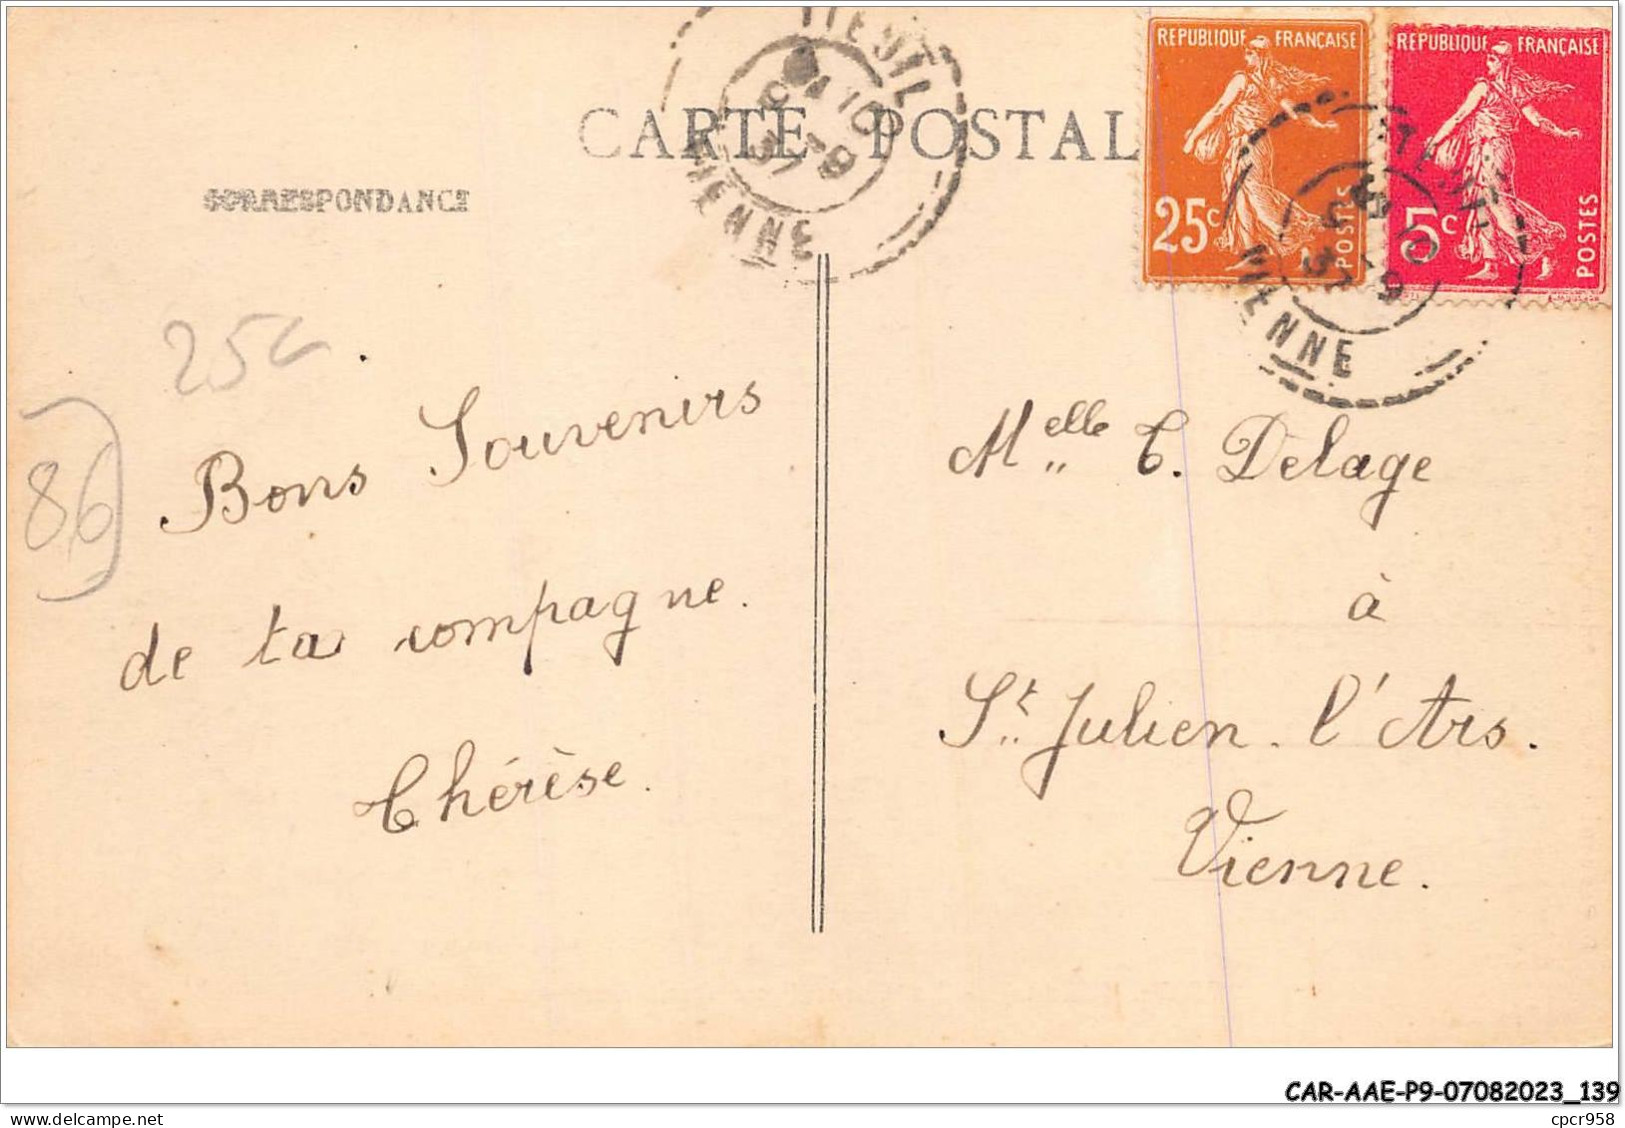 CARTE POSTAL
CORRESPONDANCE
RÉPUBLIQUE FRANÇAISE
25c
POSTES
RÉPUBLIQUE FRANÇAISE
5c
POSTES
VIENNE
VIENNE
25c
86
Bons Souvenirs
de ta compagne.
Thérèse.
Melle T. Delage
à
St Julien - l'Ars.
Vienne.
CAR-AAE-P9-07082023_139
delcampe.net
cpcr958